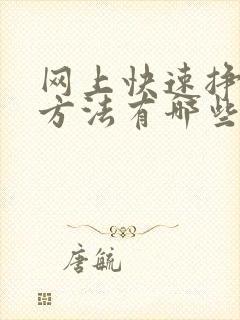 网上快速挣
方法有哪些
唐毓